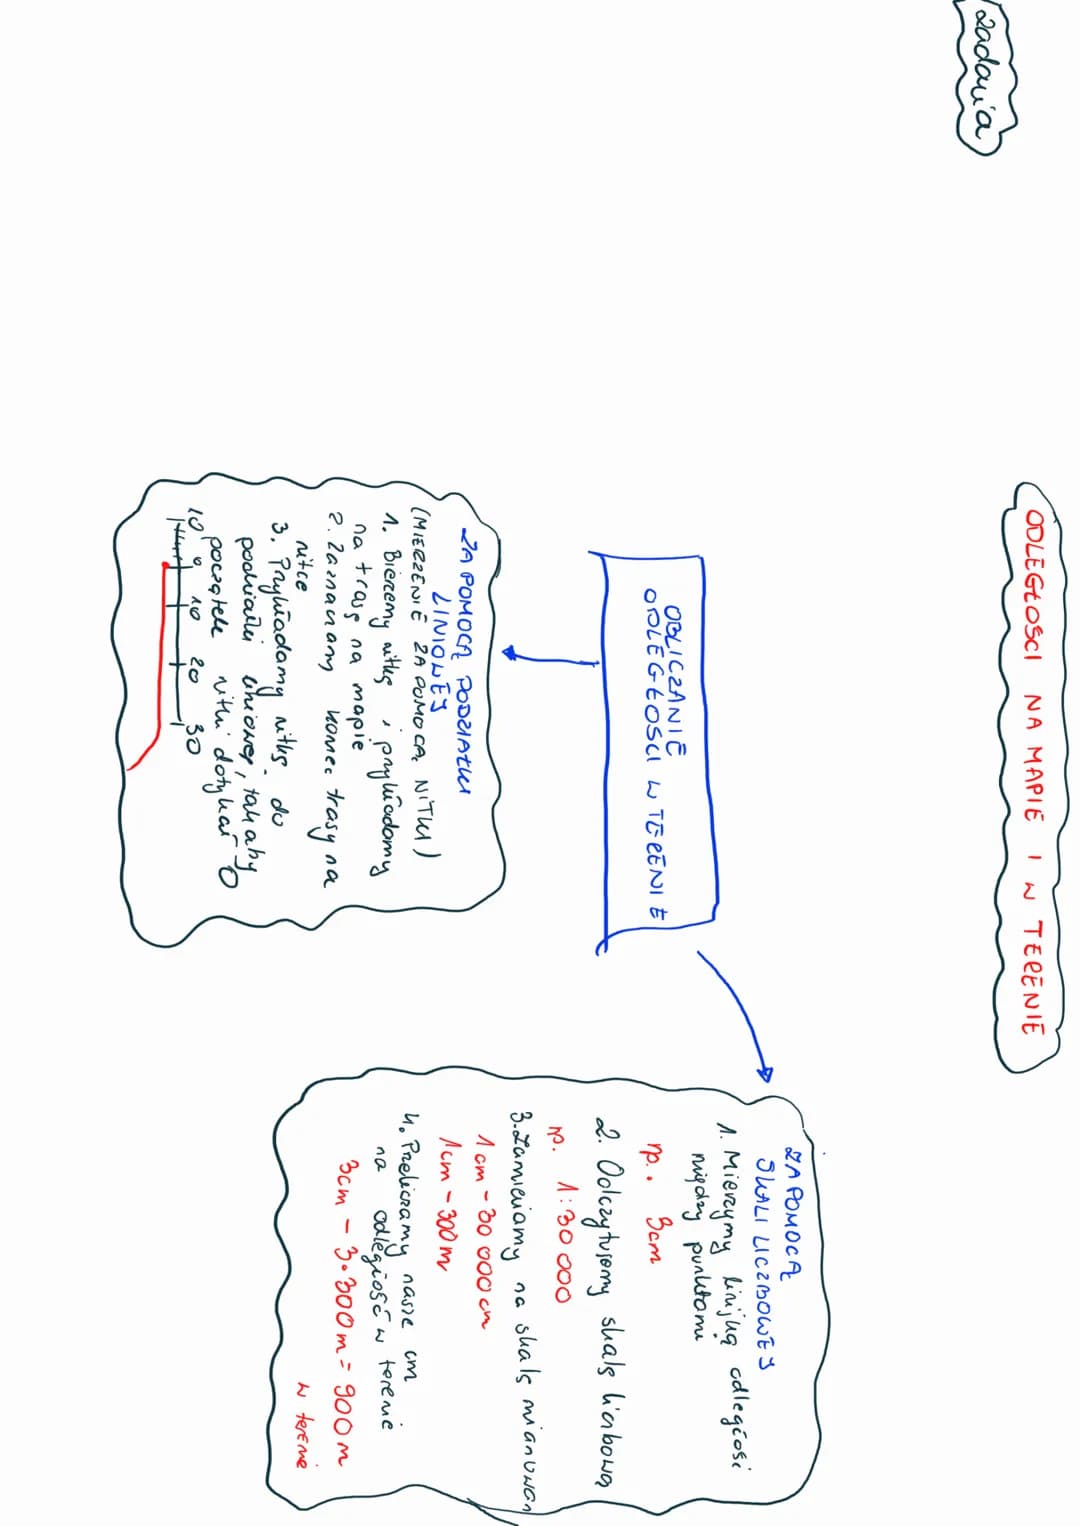 ODLEGŁOSCI NA MAPIE I W TERENIE
Zadania
OBLICZANIE
ODLEGŁOSCI W TERENIE
ZA POMOCĄ PODZIAŁKI
LINIOWEJ
(MIERZENIE ZA POMOCĄ NITKI)
1. Bierzemy nitkę i przykładamy
na trasę na mapie
2. Zaznaczamy koniec trasy na
nitce
3. Przykładamy nitkę do
podziałki liniowej, tak aby
początek nitki dotykał 0
10 0 10 20 30
ZA POMOCĄ
SKALI LICZBOWEJ
1. Mierzymy linijką odległość
między punktami
np. 3cm
2. Odczytujemy skalę liczbową
np. 1:30 000
3. Zamieniamy na skalę mianowan
1cm - 30 000 cm
1cm - 300 m
4. Przeliczamy nasze cm
na odległość w terenie
3cm - 3·300m = 900m
w terenie